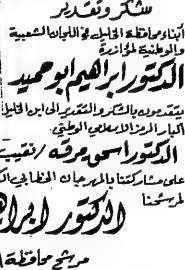 شكر وتقدير
أبناء محافظة الخليل مع اللجان الشعبية
والوطنية لمؤازرة
الدكتور ابراهيم ابو حميد
يتقدمون بالشكر والتقدير الى ابن الخليل
البار الرمز الاسلامي الوطني
الدكتور اسحق مرقة / نقيب
على مشاركتنا والمهرجان الخطابي
لمرشحنا
الدكتور ابرا
مرشح محافظة